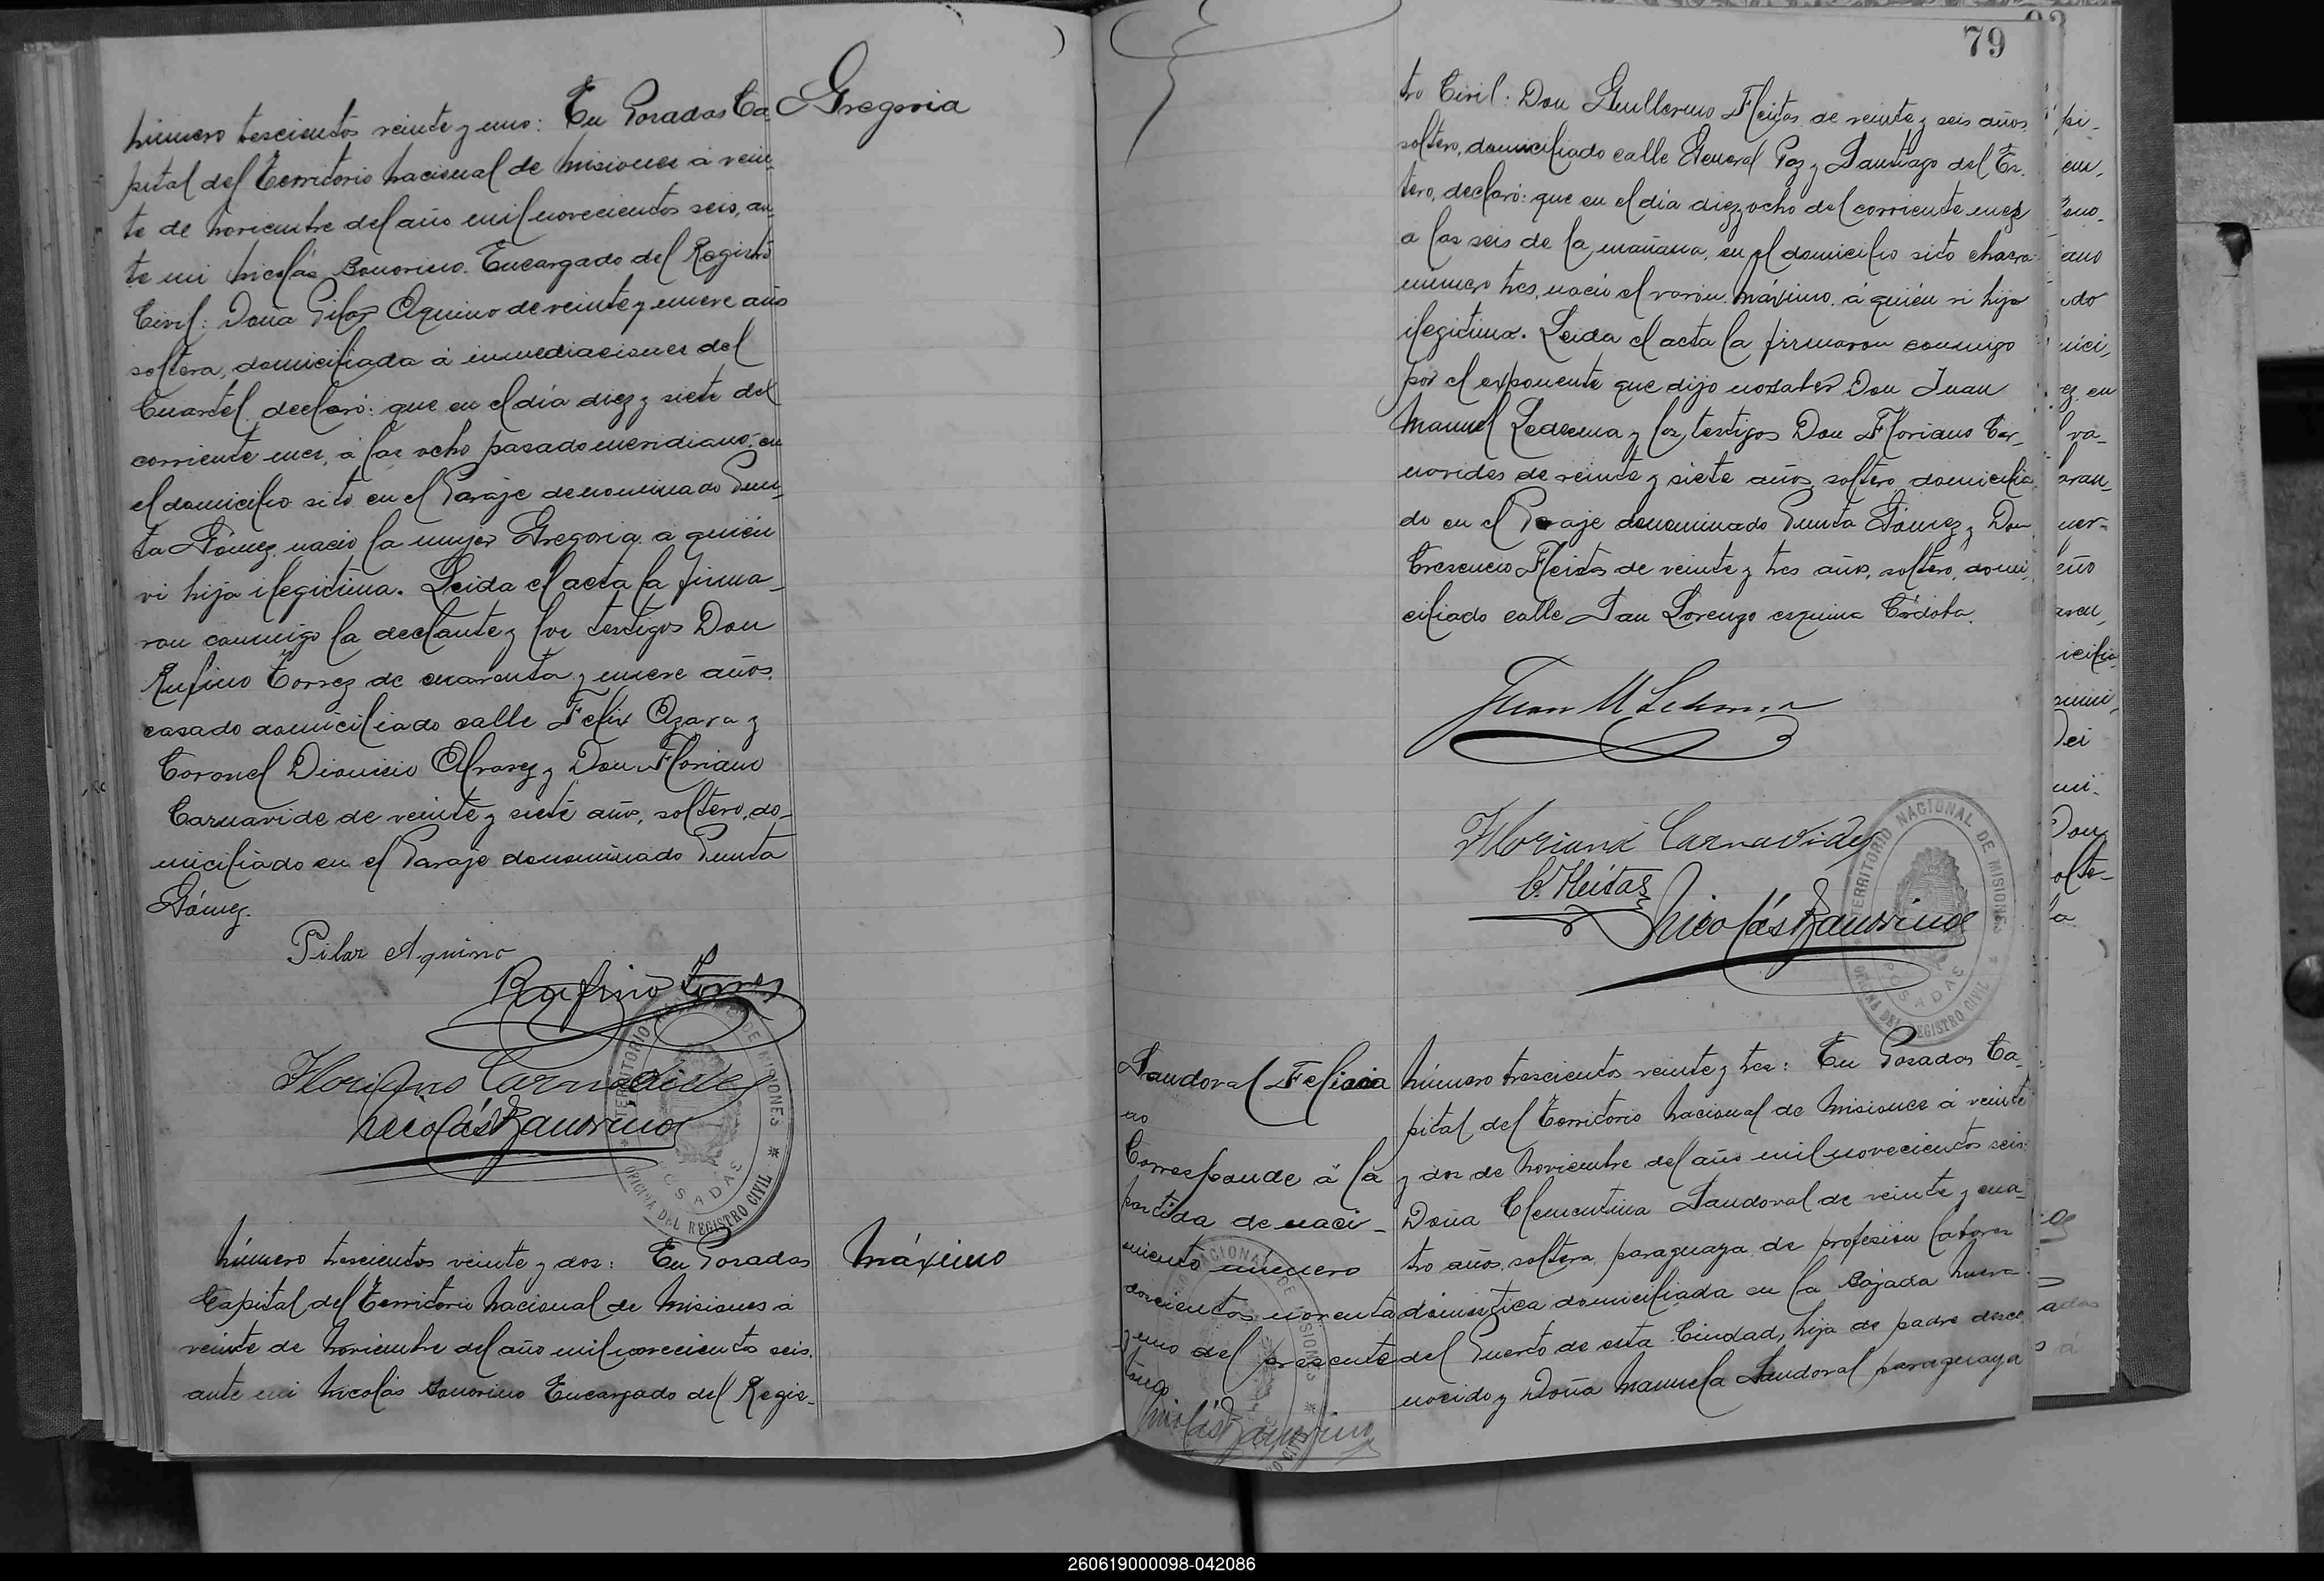 Número trescientos veinte y uno: En Posadas Ca-
pital del Territorio Nacional de Misiones á vein-
te de Noviembre del año mil novecientos seis, an-
te mi Nicolás Bonorino. Encargado del Registro
Civil: Doña Pilar Aquino de veinte y nueve años
soltera, domiciliada á inmediaciones del
Cuartel. declaró: que en el día diez y siete del
corriente mes, á las ocho pasado meridiano, en
el domicilio sito en el Paraje denominado Pun-
ta Gómez, nació la mujer Gregoria á quién
vi hija ilegitima. Leida el acta la firma-
ron conmigo la declante y los testigos Don
Rufino Torres de cuarenta y nueve años.
casado domiciliado calle Felix Azara y
Coronel Dionicio Alvarez y Don Floriano
Carnavide de veinte y siete años, soltero, do-
miciliado en el Paraje denominado Punta
Gómez.
Gregoria
Pilar Aquino
Rufino Torres
Floriano Carnavides
Nicolás Bonorino
TERRITORIO DE MISIONES
POSADAS
OFICINA DEL REGISTRO CIVIL
Número trescientos veinte y dos: En Posadas
Capital del Territorio Nacional de Misiones á
veinte de Noviembre del año mil novecientos seis.
ante mi Nicolás Bonorino Encargado del Regis-
Máximo
79
tro Civil: Don Guillermo Fleitas de veinte y seis años
soltero, domiciliado calle General Paz y Santiago del Es-
tero, declaró: que en el día diez y ocho del corriente mes
á las seis de la mañana, en el domicilio sito chacra
número tres, nació el varón Máximo á quién vi hijo
ilegitimo. Leida el acta la firmaron conmigo
por el exponente que dijo no saber Don Juan
Manuel Ledesma y los testigos Don Floriano Car-
navides de veinte y siete años, soltero domicilia-
do en el Paraje denominado Punta Gómez y Don
Crescencio Fleitas de veinte y tres años, soltero, domi-
ciliado calle San Lorenzo esquina Córdoba.
Juan M Ledesma
Floriano Carnavides
C. Fleitas
Nicolás Bonorino
TERRITORIO NACIONAL DE MISIONES
POSADAS
OFICINA DEL REGISTRO CIVIL
Sandoval Feliciano
Corresponde á la
partida de naci-
miento número
doscientos noventa
y uno del presente
tomo
Nicolás Bonorino
Número trescientos veinte y tres: En Posadas Ca-
pital del Territorio Nacional de Misiones á veinte
y dos de Noviembre del año mil novecientos seis:
Doña Clementina Sandoval de veinte y cua-
tro años, soltera, paraguaya de profesión labores
doméstica domiciliada en la Bajada Nueva
del Puerto de esta Ciudad, hija de padre desco-
nocido y Doña Manuela Sandoval paraguaya
260619000098-042086